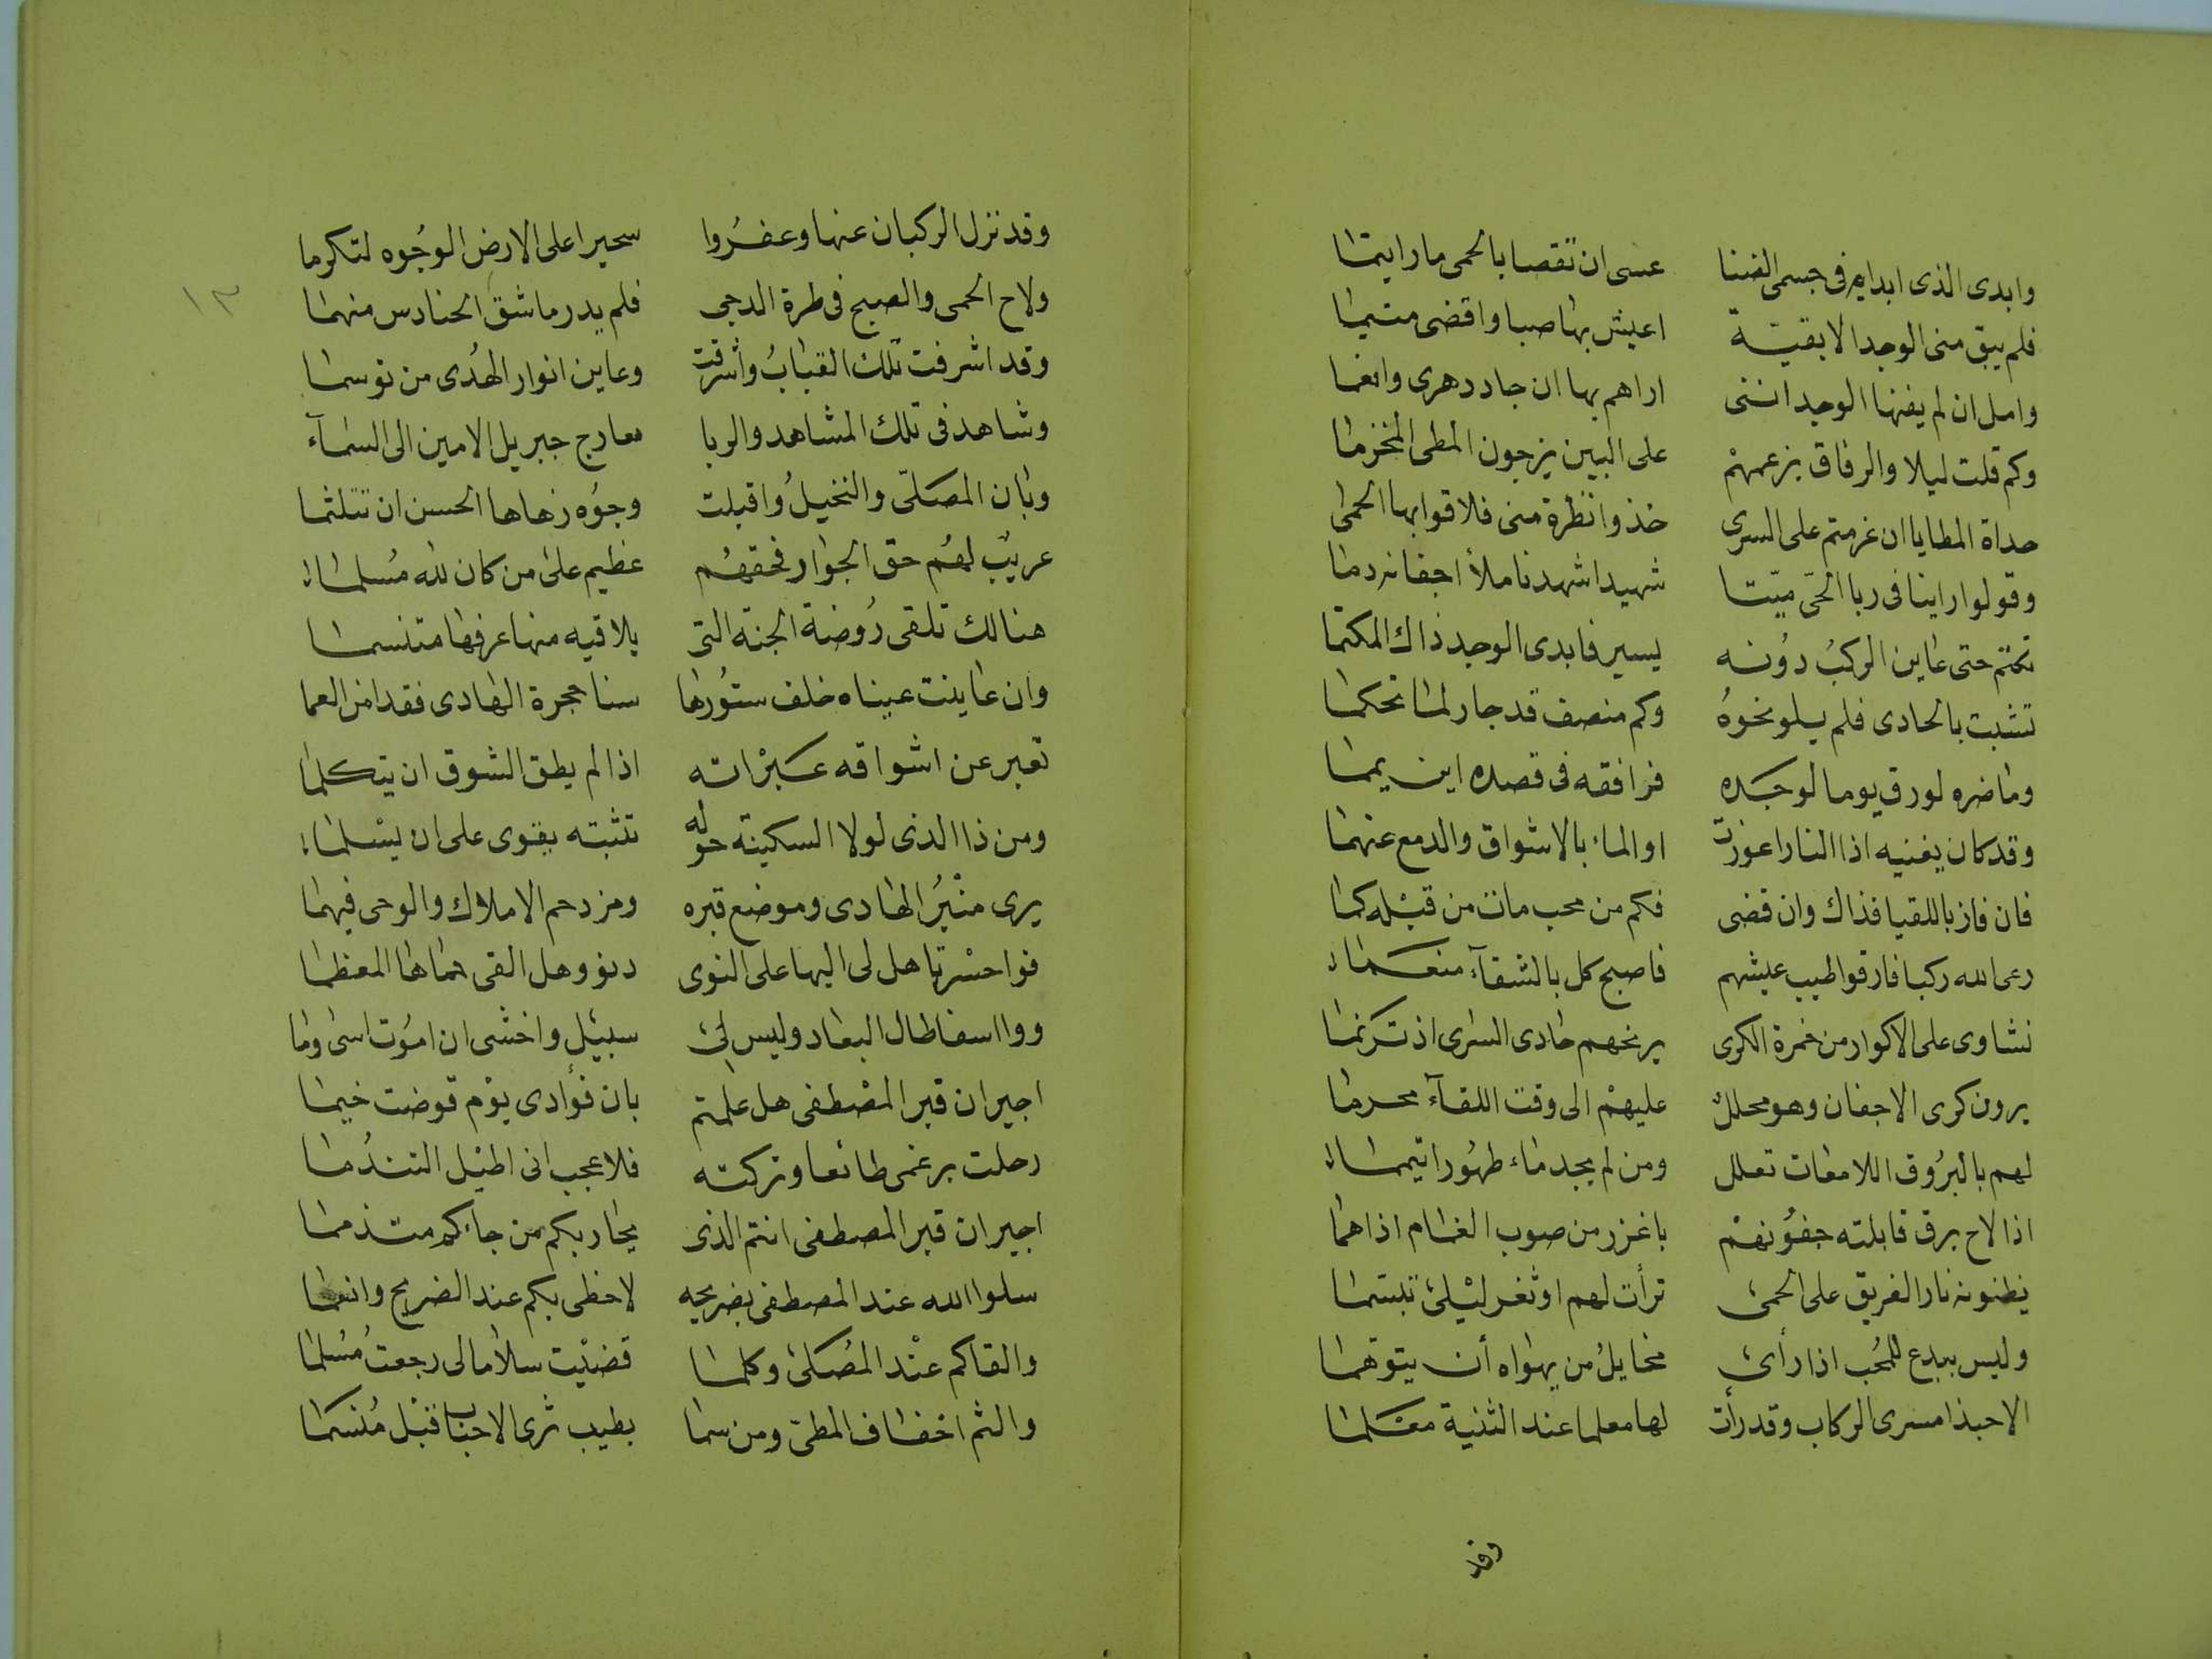 وابدى الذى ابداه فى جسمى الضنا عسى ان تقصا بالحمى ما رايتما
فلم يبق منى الوجد الا بقيّة اعيش بها صبا واقضى متيما
وامل ان لم يفنها الوجد اننى اراهم بها ان جاد دهرى وانعما
وكم قلت ليلا والرفاق بزعمهمْ على البين يزجون المطى المخزما
حداة المطايا ان عزمتم على السرى خذوا نظرة منى فلاقوا بها الحمى
وقولوا راينا فى ربا الحّى ميّتا شهيدا شهدنا ملأ اجفانه دما
تكتم حتى عاين الركبُ دوُنه يسير فابدى الوجد ذاك المكتما
تشبث بالحادى فلم يلو نحوهُ وكم منصف قد جار لما تحكما
وما ضره لو رق يوما لوجده فرافقه فى قصده اين يمما
وقد كان يغنيه اذا النار اعوزت او الماء بالاشواق والدمع عنهما
فان فاز باللقيا فذاك وان قضى فكم من محب مات من قبْله كما
رعى الله ركبا فارقوا طيب عيشهم فاصبح كل بالشقآء منعما
نشاوى على الاكوار من خمرة الكرى يرنحهم حادى السرى اذ ترنما
يرون كرى الاجفان وهو محلل عليهمْ الى وقت اللقآء محرما
لهم بالبرُوق اللامعات تعلل ومن لم يجد ماء طهُورا تيمما
اذا لاح برق قابلته جفوُنهمْ باغزر من صوب الغمام اذا هما
يظنونه نار الفريق على الحمى ترأت لهم او ثغر ليْلى تبسما
وليس ببدع للمُحب اذا رأى مخايلُ من يهواه أن يتوهما
الا حبذا مسرى الركاب وقد رأت لها معلما عند الثنية معلما
وقد
١٣
وقد نزل الركبان عنها وعفرُوا سحيرا على الارض الوجُوه لتكرما
ولاح الحمى والصبح فى طرة الدجى فلم يدر ما شق الحنادس منهما
وقد اشرفت تلك القبابُ واشرقت وعاين انوار الهُدى من توسما
وشاهد فى تلك المشاهد والربا معارج جبريل الامين الى السمآء
وبان المصَلّى والنخيلُ واقبلت وجوُه زهاها الحسن ان تتلثما
عريبٌ لهُم حق الجوار فحقهُم عظيم على من كان لله مُسلما
هنالك تلقى رُوضة الجنة التى يلاقيه منها عرفها متنسما
وان عاينت عيناه خلف ستوُرها سنا حجرة الهادى فقد امن العما
تعبر عن اشواقه عبرْاته اذا لم يطق الشوق ان يتكلما
ومن ذا الذى لولا السكينة حوله تثبته يقوى على ان يسْلما
يرى منْبرُ الهادى وموضع قبره ومزدحم الاملاك والوحى فيهما
فواحسْرتا هل لى اليها على النوى دنو وهل القى حماها المعظما
ووا اسفا طال البعاد وليس لىْ سبيْل واخشى ان اموُت اسى وما
اجيران قبر المصْطفى هل علمتم بان فؤادى يوْم قوضت خيما
رحلت برغمى طائعا وتركته فلا عجب انى اطيْل التندُما
اجيران قبر المصطفى انتم الذى يجار بكم من جاءكم متذمما
سلوا الله عند المصطفى بضريحه لاحظى بكم عند الضريح وانعما
والقاكم عنْد المُصَلى وكلما قضيْت سلاما لى رجعتُ مُسلما
والثم اخفاف المطىّ ومن سما بطيب ثرى الاحباب قبْل مُنسكما